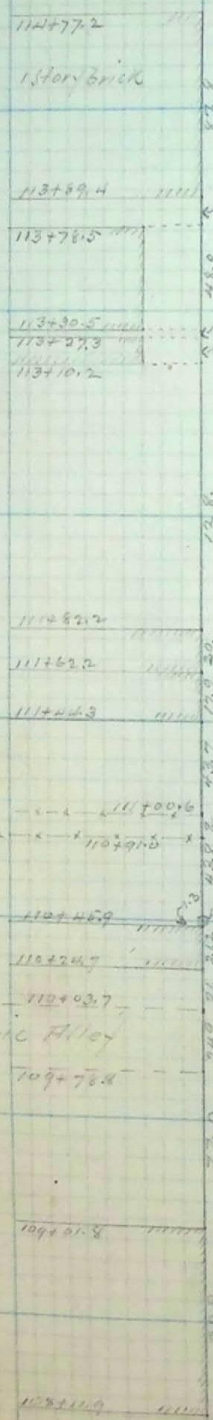 114+77.2
1 story brick
113+89.4
113+78.5
48.0
113+30.5
113+27.3
113+10.2
128
111+82.2
111+62.2
20
17.9
111+44.3
43.7
111+00.6
110+91.0
110+45.9
110+24.7
110+03.7
ic Alley
109+78.8
109+01.8